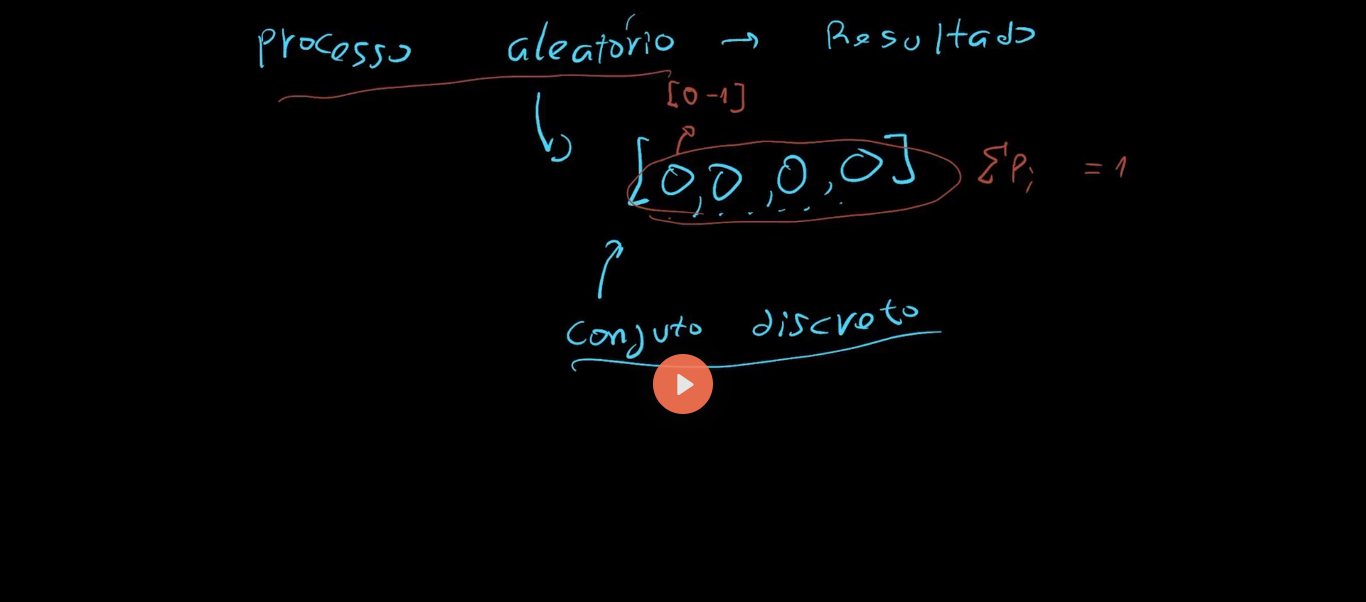 processo aleatório → Resultado
[0-1]
[0,0,0,0] ΣPi = 1
conjuto discreto